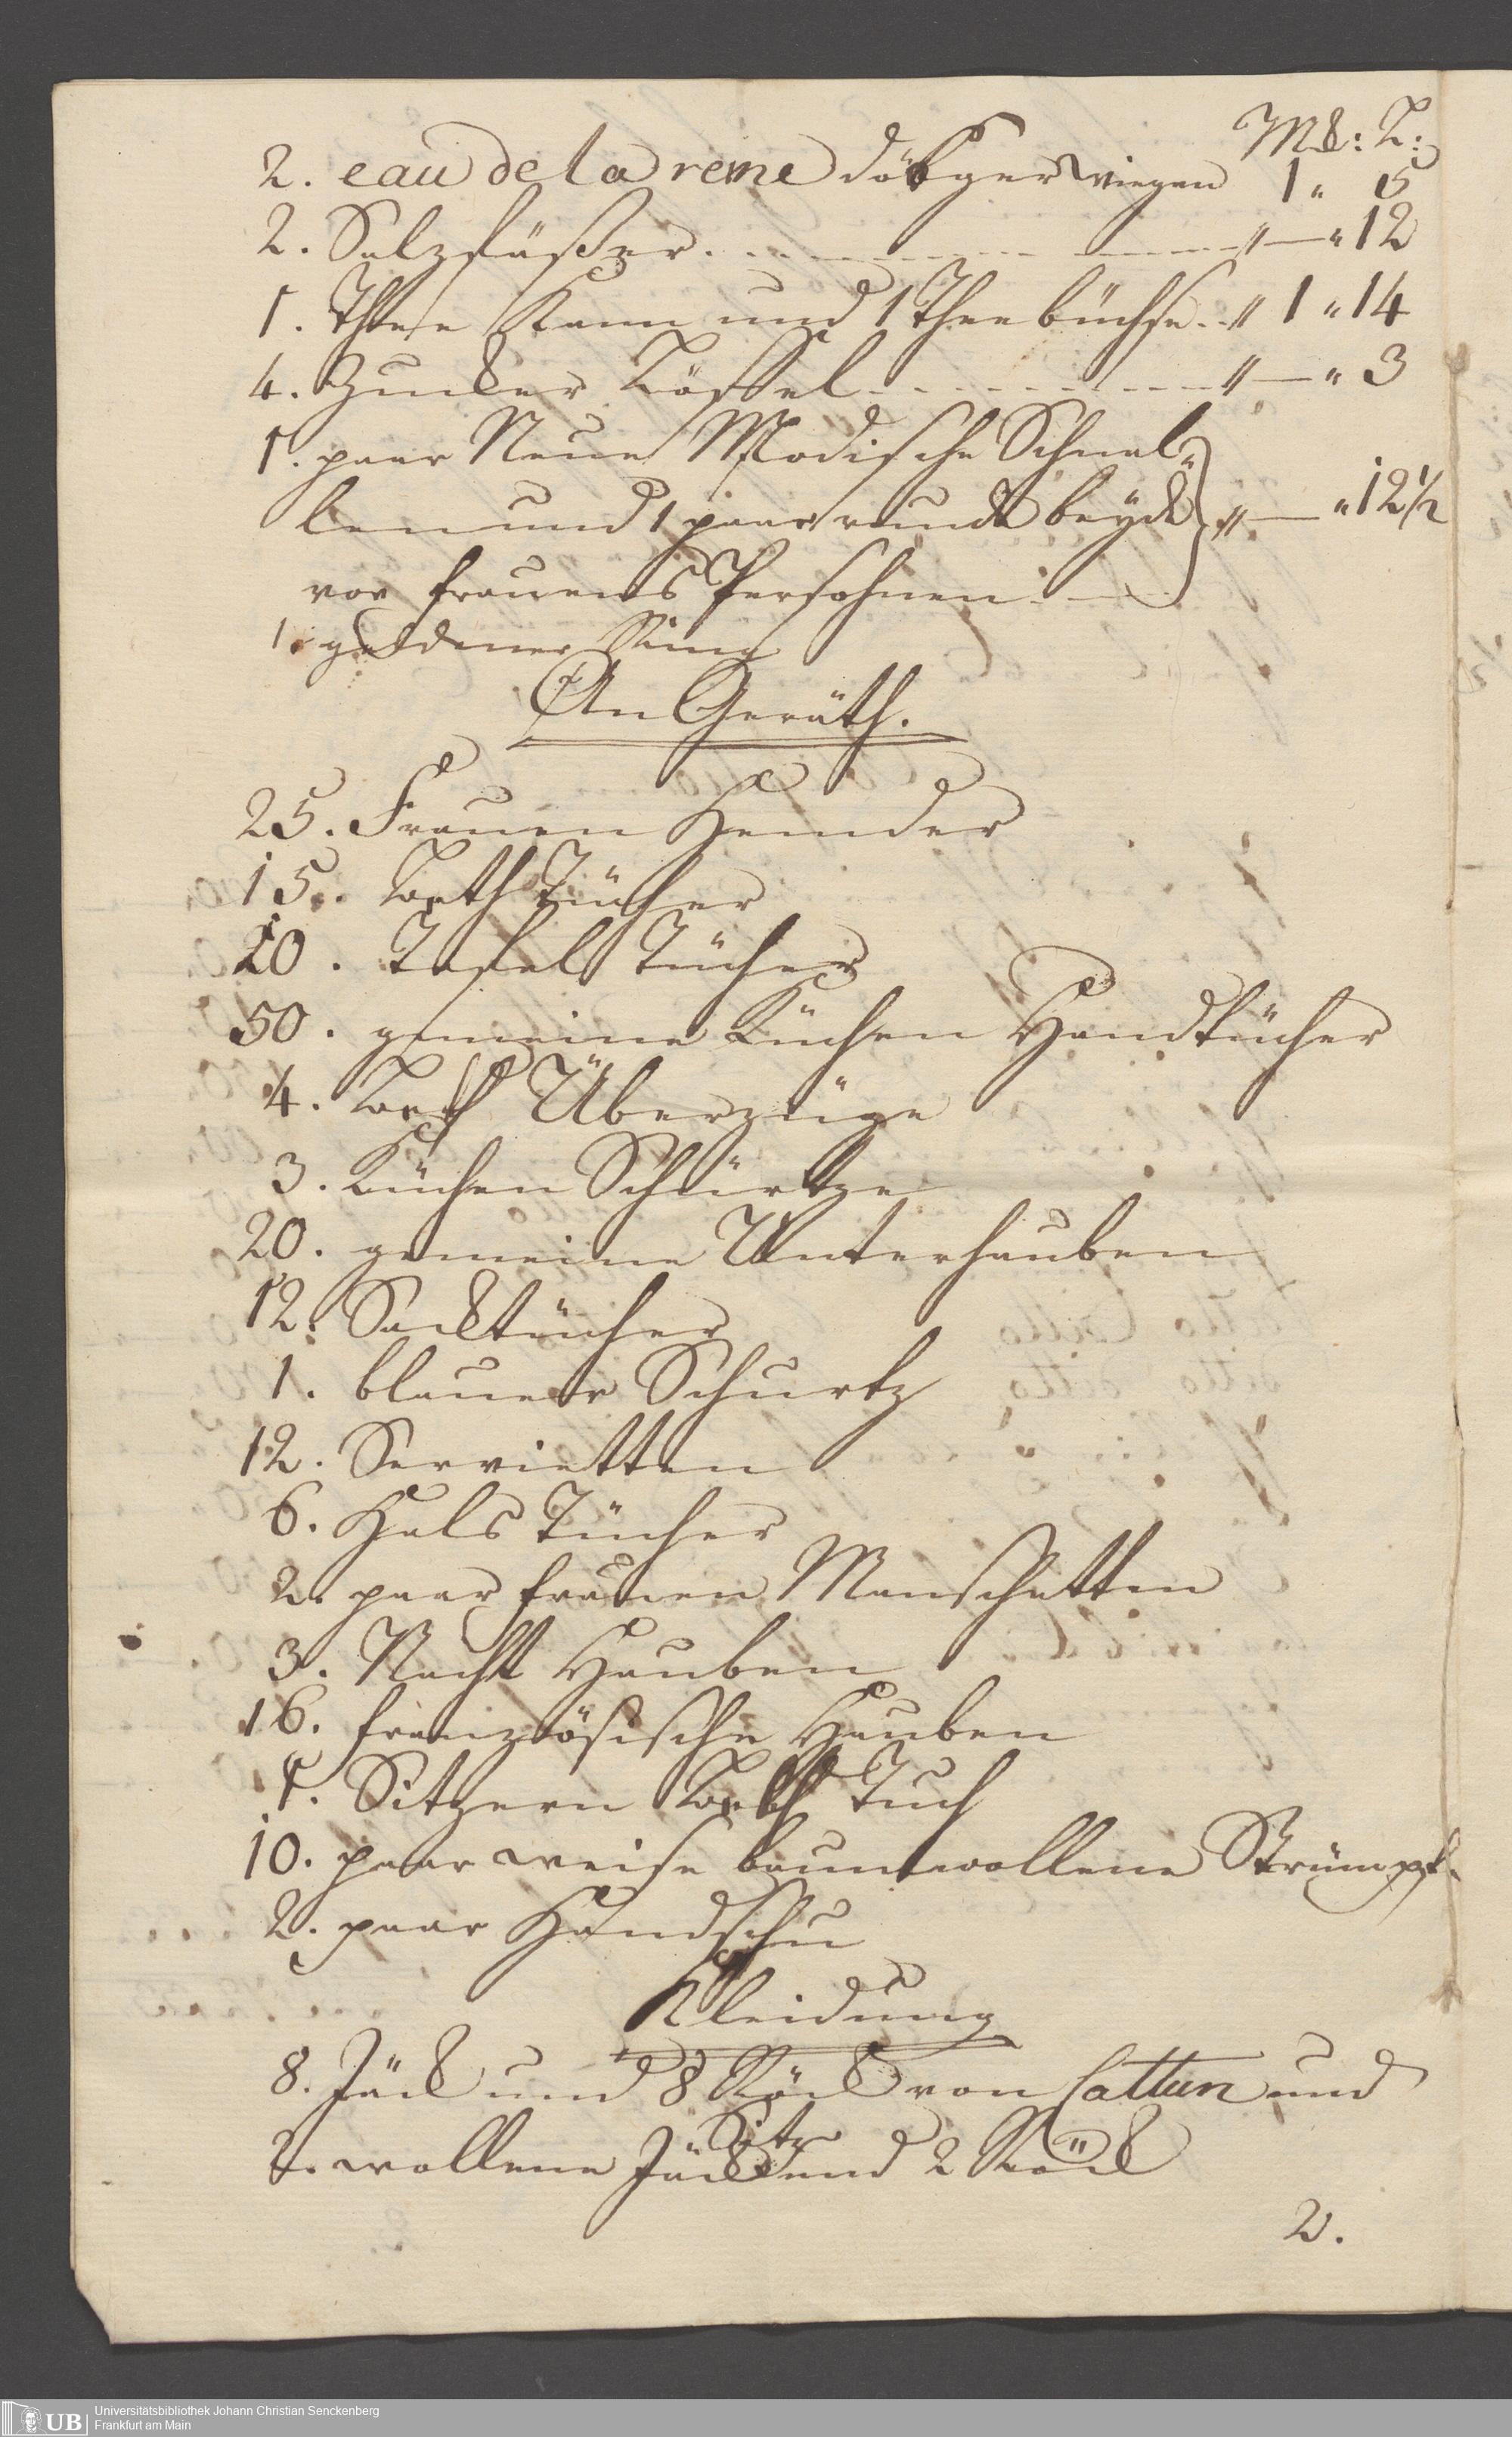 Mk: L:
2. eau de la reine döbger wiegen 1 " 5
2. Saltzfäßer. " — " 12
1. Thee Kann und 1 Theebüchse " 1 " 14
4. Zucker Löffel " — " 3
1. paar Neue Modische Schnal=
len und 1 paar runde beyde " — " 12 1/2
vor frauens Persohnen
1. goldener Ring
An Geräth.
25. Frauen Hemder
15. Betth Tücher
10. Tafel Tücher
50. gemeine Küchen Handtücher
4. Betth Überzüge
3. Küchen Schürtze
20. gemeine Unterhauben
12. Sacktücher
1. blauer Schurtz
12. Servietten
6. Hals Tücher
2. paar frauen Manschetten
3. Nacht Hauben
16. französische Hauben
1. Sitzern Betth Tuch
10. paar weise baumwollene Strümpf
2. paar Handschu
Kleidung
8. Jäck und 8 Röck von Cattun und Sitz
2. wollene Jäck und 2 Röck
2.
Universitätsbibliothek Johann Christian Senckenberg
Frankfurt am Main
UB